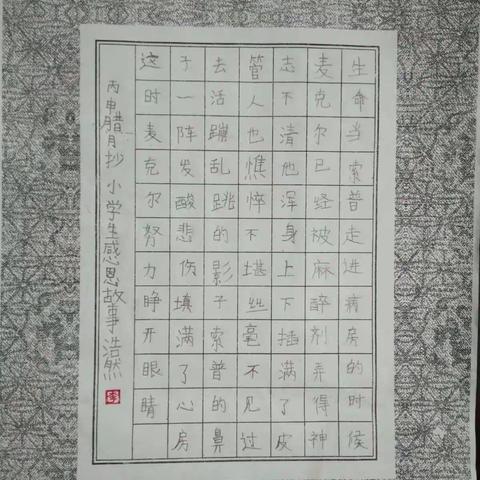 生命当索普走进病房的时候
麦克尔已经被麻醉剂弄得神
志不清他浑身上下插满了皮
管人也憔悴不堪丝毫不见过
去活蹦乱跳的影子索普的鼻
子一阵发酸悲伤填满了心房
这时麦克尔努力睁开眼睛
丙申腊月抄 小学生感恩故事 浩然